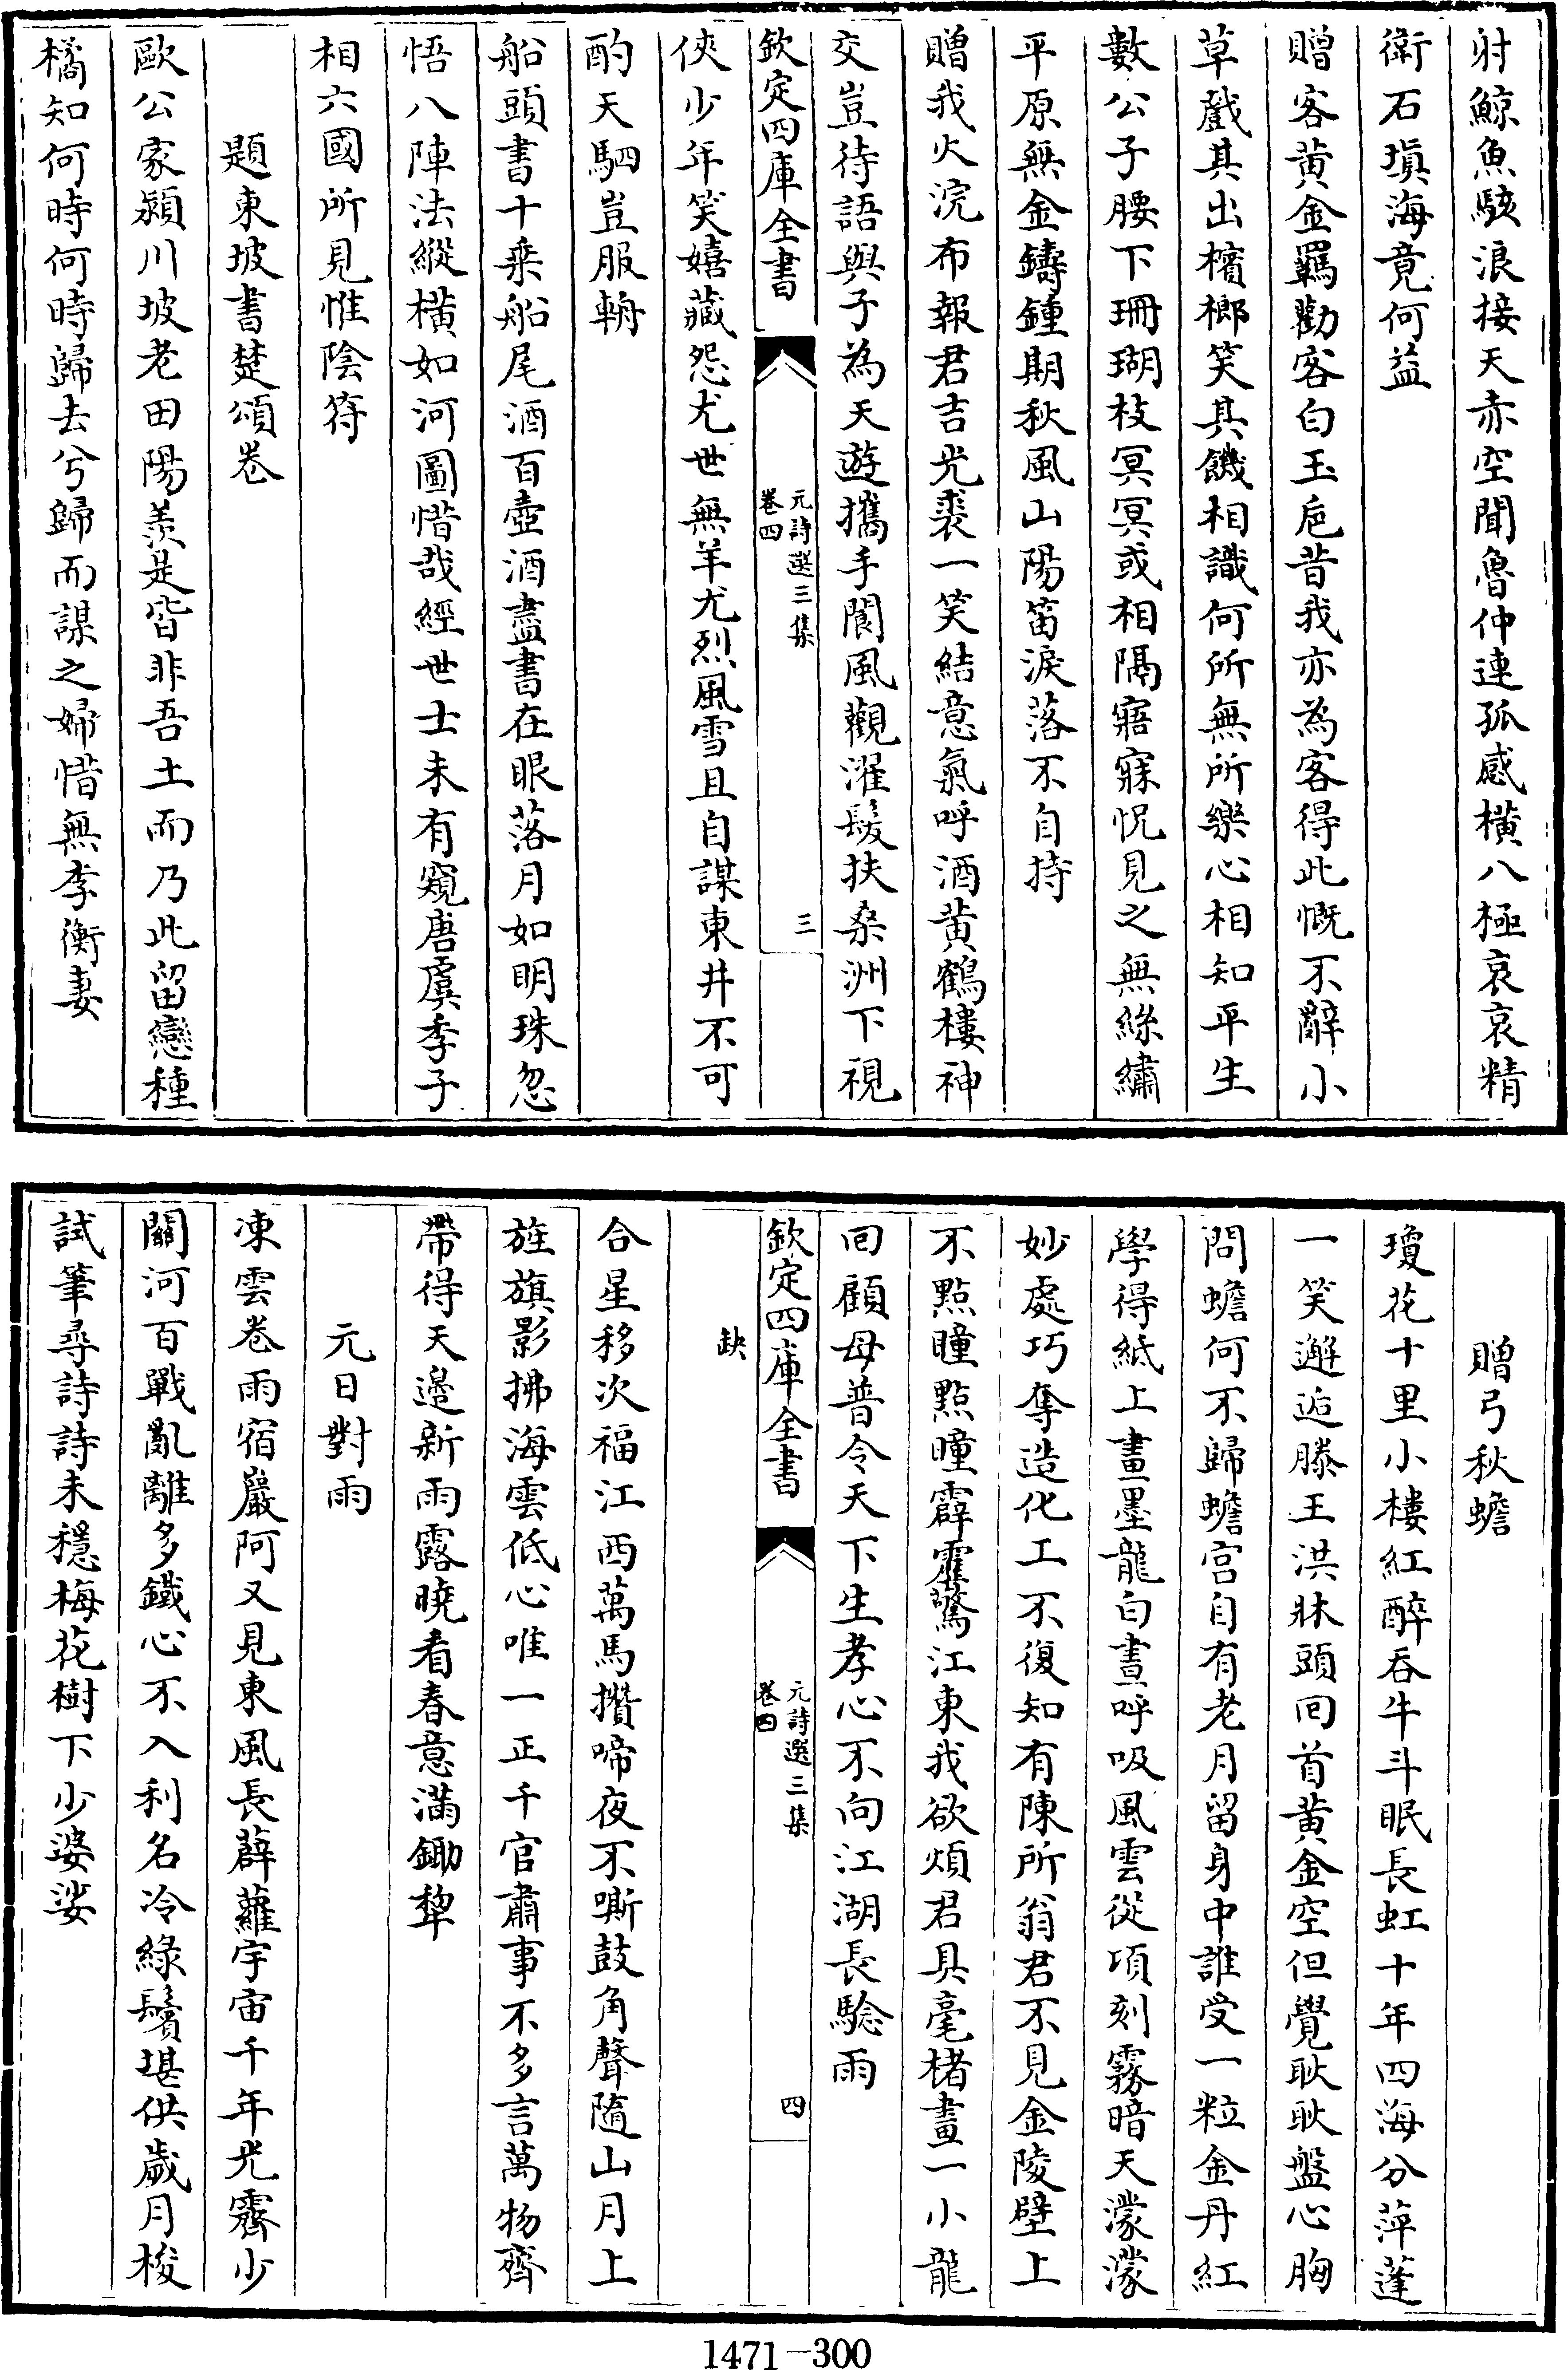 射鯨魚駭浪接天赤空聞魯仲連孤感橫八極哀哀精
衛石塡海竟何益
贈客黃金羈勸客白玉巵昔我亦為客得此慨不辭小
草戲其出檳榔笑其饑相識何所無所樂心相知平生
數公子腰下珊瑚枝冥冥或相隔寤寐怳見之無絲繡
平原無金鑄鍾期秋風山陽笛淚落不自持
贈我火浣布報君吉光裘一笑結意氣呼酒黃鶴樓神
交豈待語與子為天遊攜手閬風觀濯髮扶桑洲下視
欽定四庫全書
元詩選三集
卷四
三
俠少年笑嬉藏怨尤世無羊尤烈風雪且自謀東井不可
酌天駟豈服輈
船頭書十乘船尾酒百壺酒盡書在眼落月如明珠忽
悟八陣法縱橫如河圖惜哉經世士未有窺唐虞季子
相六國所見惟陰符
題東坡書楚頌卷
歐公家潁川坡老田陽羨是皆非吾土而乃此留戀種
橘知何時何時歸去兮歸而謀之婦惜無李衡妻
贈弓秋蟾
瓊花十里小樓紅醉吞牛斗眠長虹十年四海分萍蓬
一笑邂逅滕王洪牀頭回首黃金空但覺耿耿盤心胸
問蟾何不歸蟾宮自有老月留身中誰受一粒金丹紅
學得紙上畫墨龍白晝呼吸風雲從項刻霧暗天濛濛
妙處巧奪造化工不復知有陳所翁君不見金陵壁上
不點瞳點瞳霹靂驚江東我欲煩君具毫楮畫一小龍
回顧母普令天下生孝心不向江湖長騐雨
欽定四庫全書
元詩選三集
卷四
四
缺
合星移次福江西萬馬攢啼夜不嘶鼓角聲隨山月上
旌旗影拂海雲低心唯一正千官肅事不多言萬物齊
帶得天邊新雨露曉看春意滿鋤犂
元日對雨
凍雲卷雨宿巖阿又見東風長薜蘿宇宙千年光霽少
關河百戰亂離多鐵心不入利名冷綠鬢堪供歲月梭
試筆尋詩詩未穩梅花樹下少婆娑
1471—300